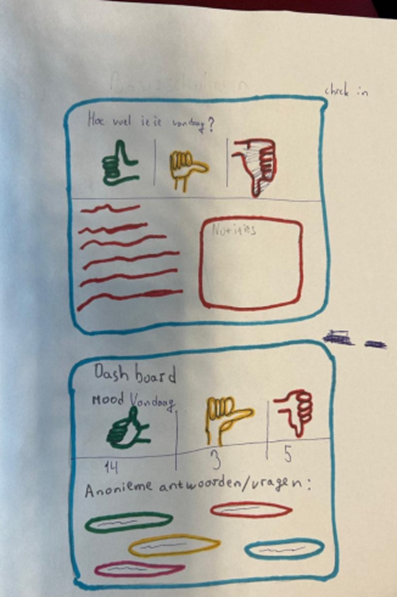 check in
Hoe voel je je vandaag?
Notities
Dashboard
Mood Vandaag
14 3 5
Anonieme antwoorden/vragen: